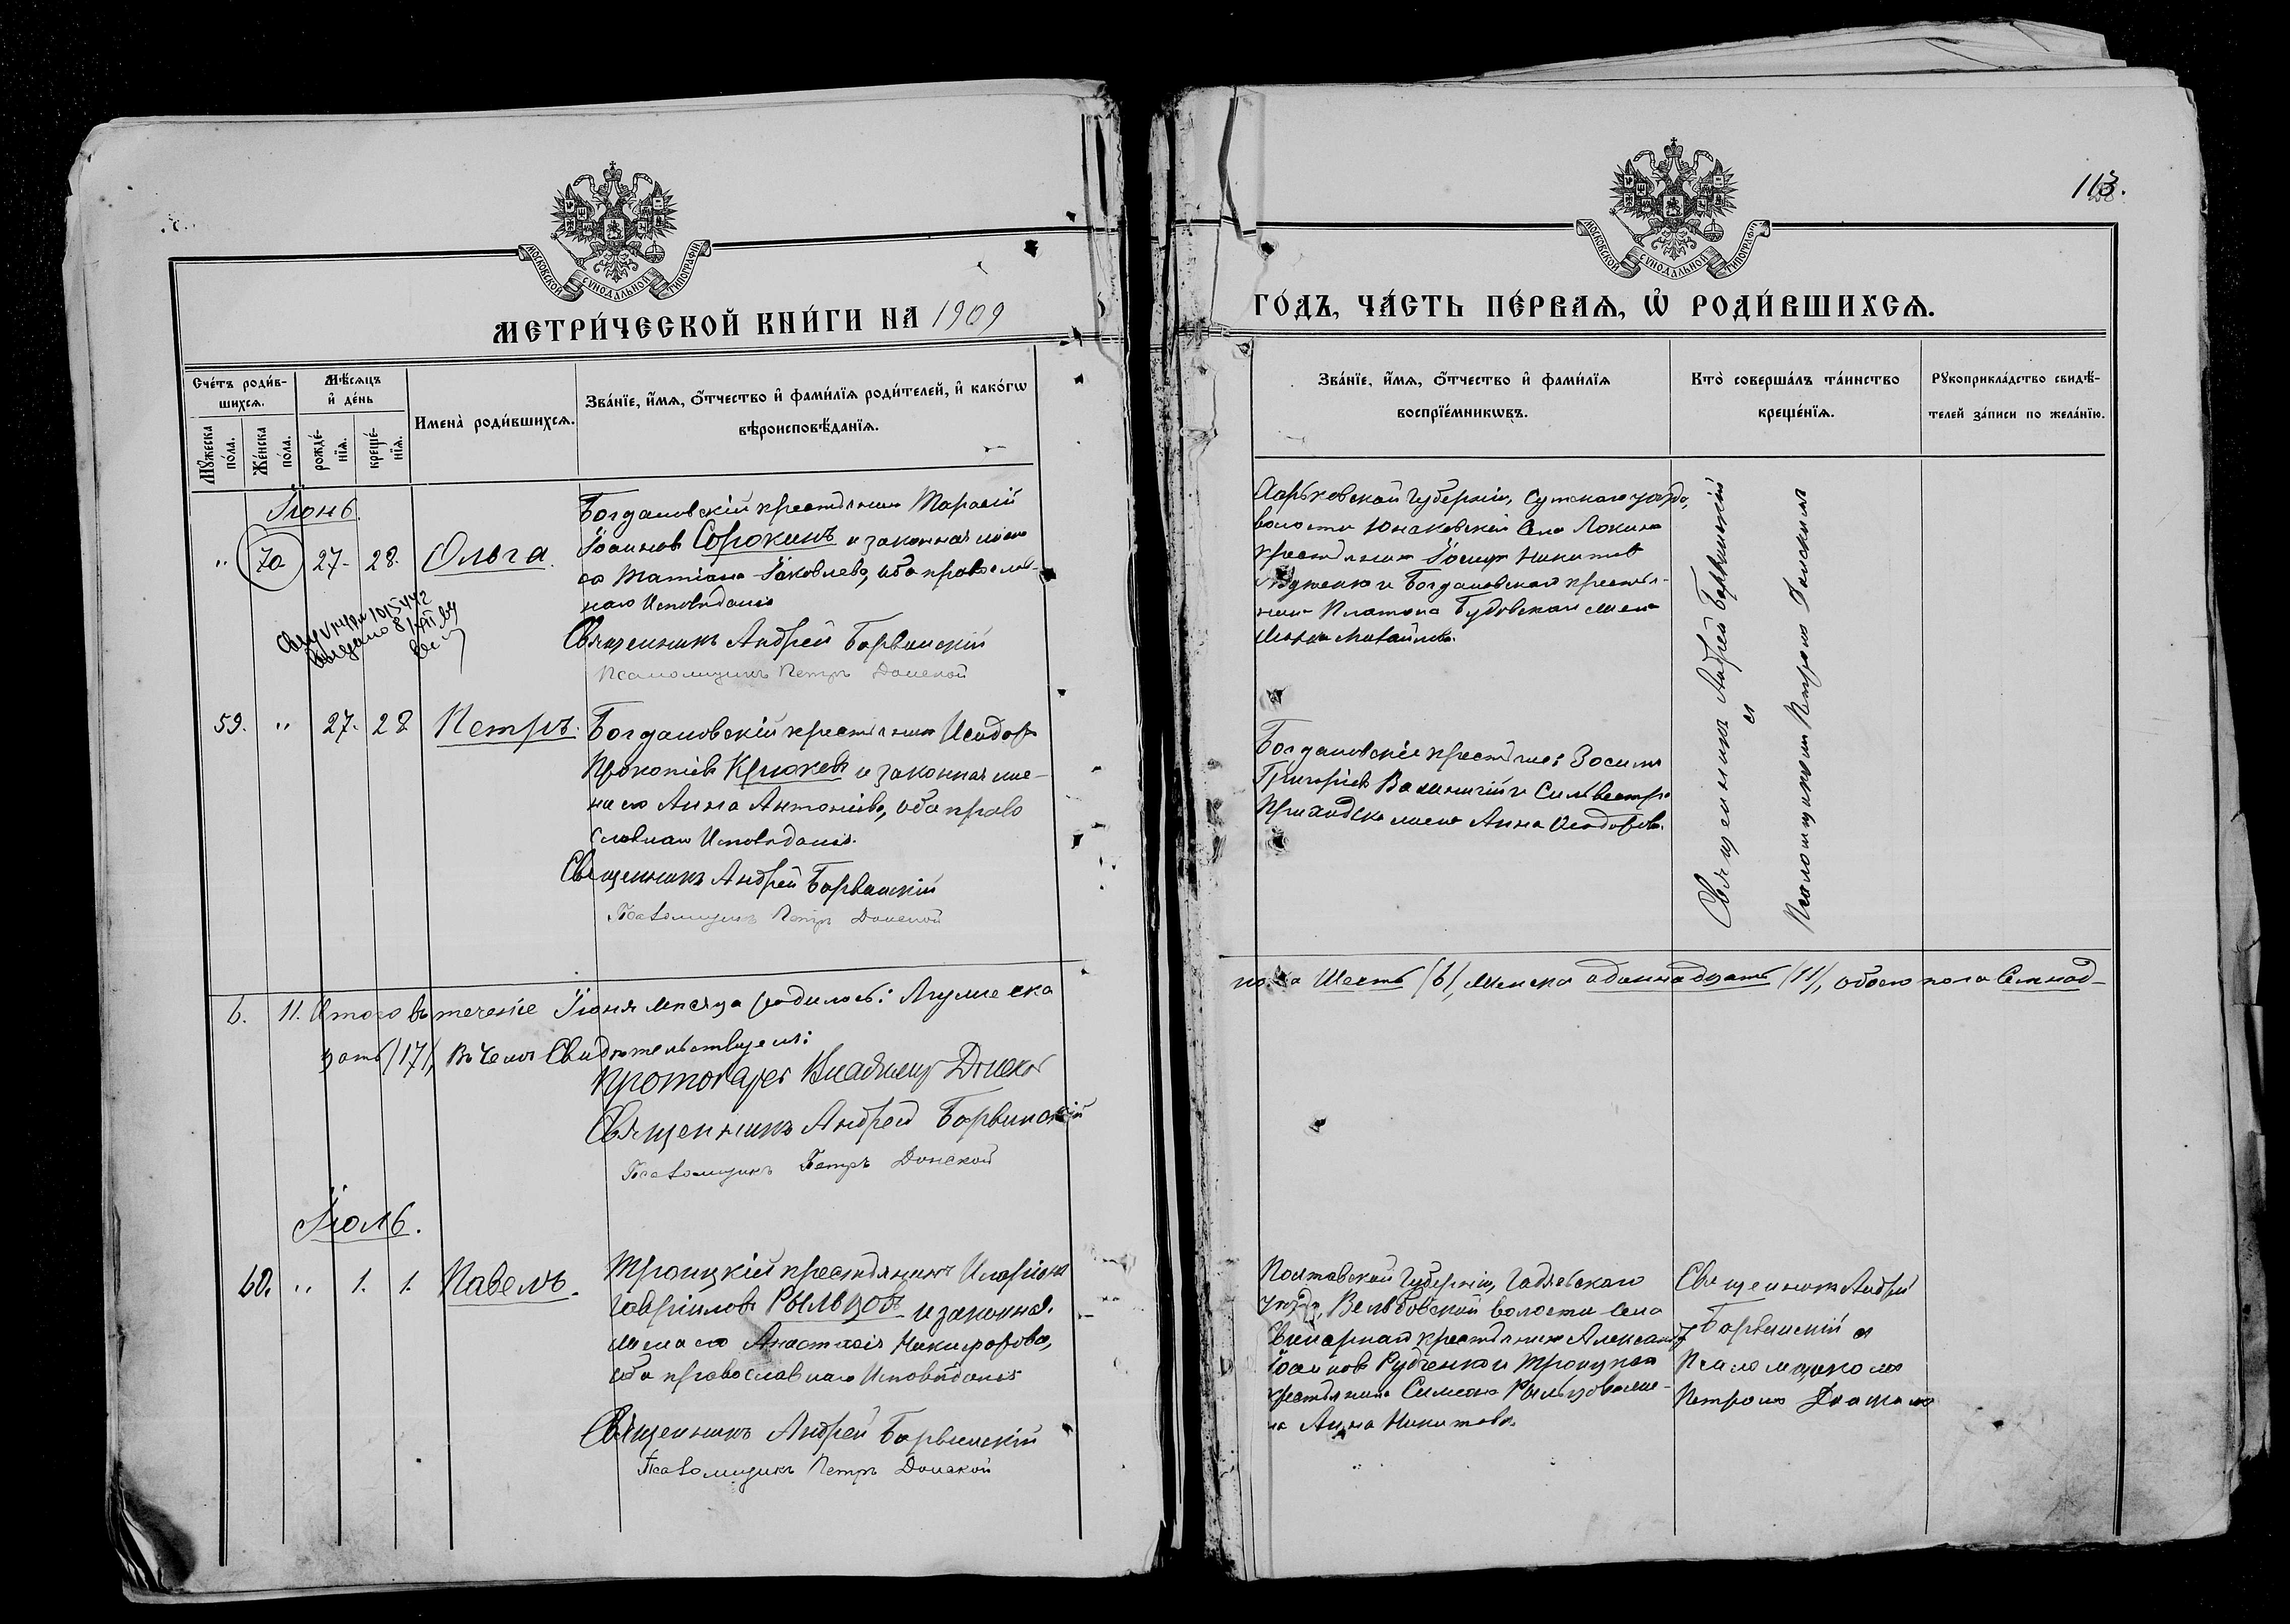 113.
МОСКОВСКОЙ СѴНОДАЛЬНОЙ ТИПОГРАФІИ
МОСКОВСКОЙ СѴНОДАЛЬНОЙ ТИПОГРАФІИ
МЕТРИ́ЧЕСКОЙ КНИ́ГИ НА 1909
ГО́ДЪ, ЧА́СТЬ ПЕ́РВАѦ, Ѡ҆ РОДИ́ВШИХСѦ.
Сче́тъ роди́в-
шихсѧ.
Мꙋ́жеска
по́ла.
Же́нска
по́ла.
Мѣ́сѧцъ
и҆ де́нь
рожде́-
нїѧ.
креще́-
нїѧ.
Имена̀ роди́вшихсѧ.
Зва́нїе, и҆́мѧ, ѻ҆́тчество и҆ фами́лїѧ роди́телей, и҆ како́гѡ
вѣроисповѣ́данїѧ.
Зва́нїе, и҆́мѧ, ѻ҆́тчество и҆ фами́лїѧ
воспрїе́мникѡвъ.
Кто̀ соверша́лъ та́инство
креще́нїѧ.
Рꙋкоприкла́дство свидѣ́-
телей за́писи по жела́нїю.
Іюнь.
" 70 27. 28. Ольга.
Богдановскій крестьянинъ Тарасій
Іоанновъ Сорокинъ и законная жена
его Татіана Іаковлева, оба православ-
наго Исповѣданія
Священникъ Андрей Борвинскій
Псаломщикъ Петръ Донской
Харьковской Губерніи, Сумскаго уѣзда,
волости Юнаковской Села Локни
крестьянинъ Іосифъ Никитовъ
и Богдановскаго крестья-
нина Платона Будовскаго жена
Михайлова.
Священникъ Андрей Борвинскій
и
Псаломщикомъ Петромъ Донскимъ
59. " 27. 28 Петръ.
Богдановскій крестьянинъ Исидоръ
Прокопіевъ Крюковъ и законная же-
на его Анна Антоніева, оба право
славнаго Исповѣданія.
Священникъ Андрей Борвинскій
Псаломщикъ Петръ Донской
Богдановскіе крестьяне: Зосима
Григоріевъ и Сильвестра
Приходько жена Анна Исидорова.
6. 11. Итого въ теченіе Іюня мѣсяца родилось: Мужеска
пола Шесть (6), Женска одиннадцать (11), обоего пола Семнад-
цать (17), Въ чемъ Свидѣтельствуемъ:
Протоіерей Владиміръ Донской
Священникъ Андрей Борвинскій
Псаломщикъ Петръ Донской
Іюль.
60. " 1. 1. Павелъ.
Троицкій крестьянинъ Иларіонъ
Гавріиловъ Рыльцовъ и законная
жена его Анастасія Никифорова,
оба православнаго Исповѣданія
Священникъ Андрей Борвинскій
Псаломщикъ Петръ Донской
Полтавской Губерніи, Гадячскаго
уѣзда, Вельбовской волости Села
крестьянинъ Александръ
Іоанновъ Рудченко и Троицкаго
крестьянина Симеона Рыльцова же-
на Анна Никитова.
Священникъ Андрей
Борвинскій и
Псаломщикомъ
Петромъ Донскимъ